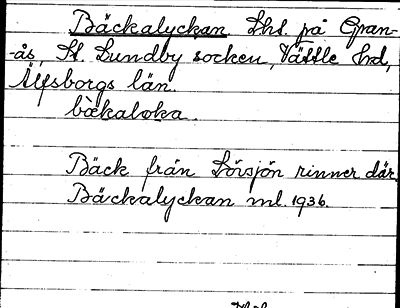 Bäckalyckan Lht. på Gran-
-ås, St. Lundby socken, Vättle hd,
Älfsborgs län.
bækaloka.
Bäck från Lövsjön rinner där.
Bäckalyckan ml. 1936.